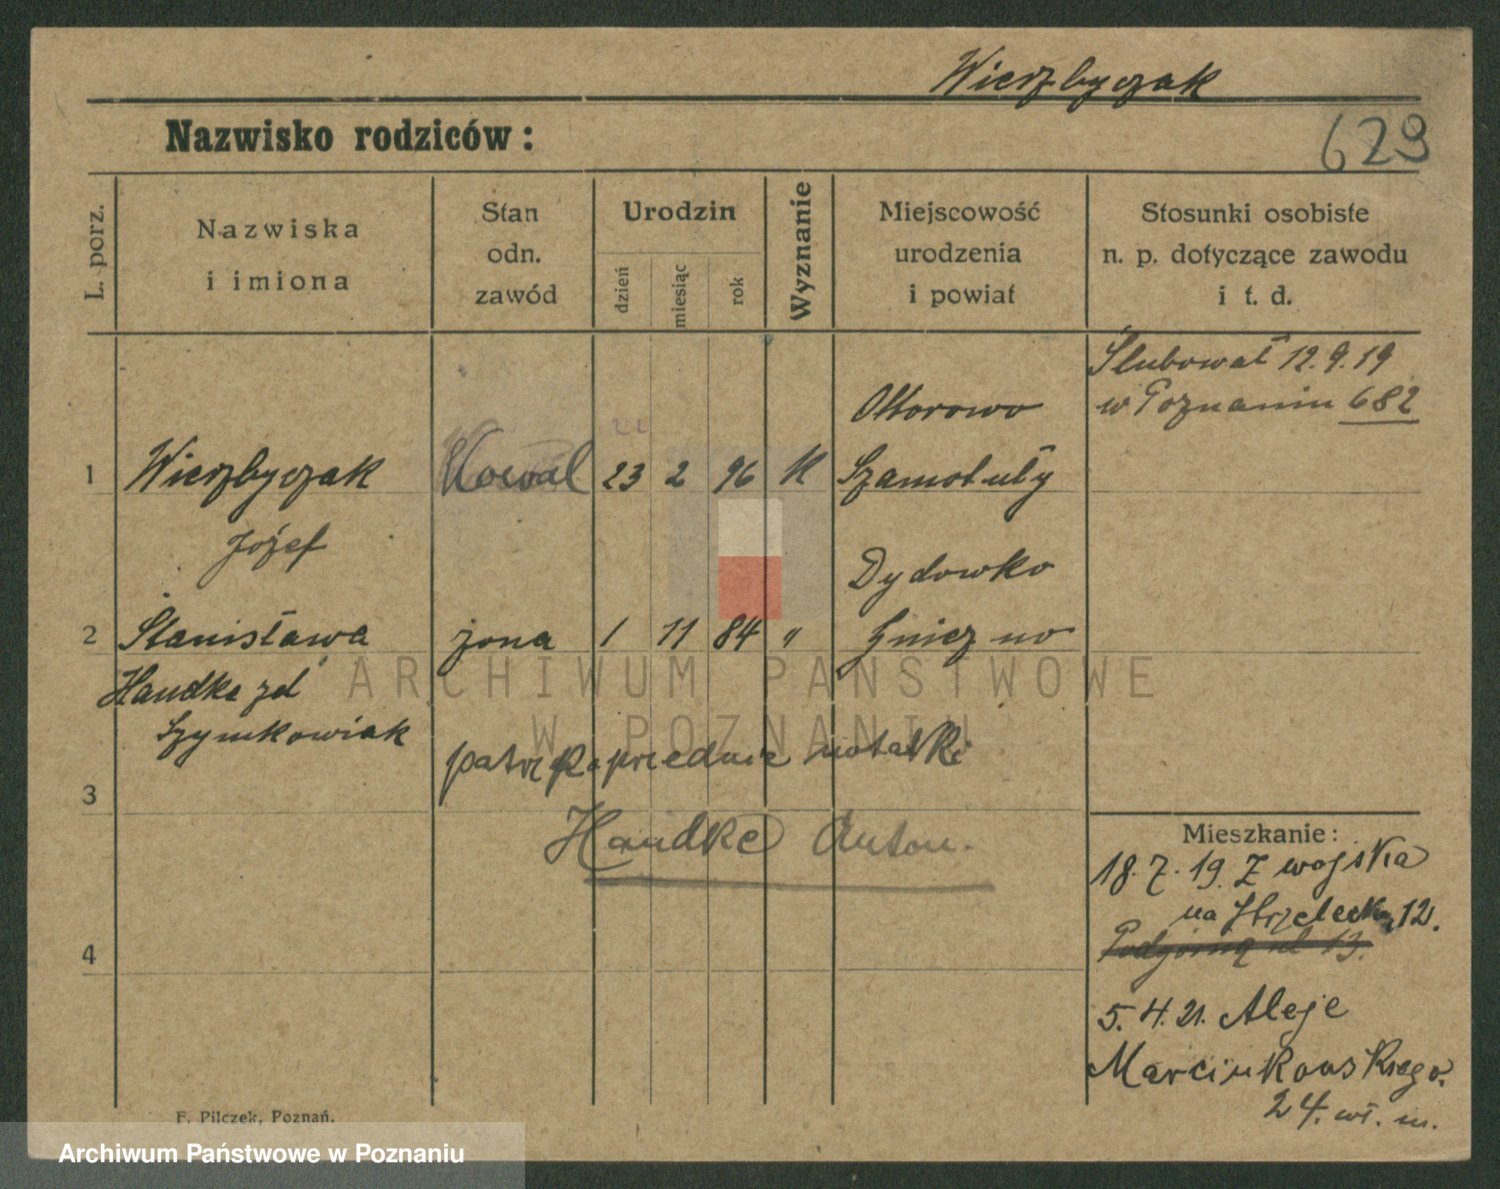 Wierzbyczak
Nazwisko rodziców:
629
L. porz.
Nazwiska
i imiona
Stan
odn.
zawód
Urodzin
dzień
miesiąc
rok
Wyznanie
Miejscowość
urodzenia
i powiat
Stosunki osobiste
n. p. dotyczące zawodu
i t. d.
Ślubował 12.9.19
w Poznaniu 682
Ottorowo
1 Wierzbyczak Kowal 23 2 96 K Szamotuły
Józef
Dydowko
2 Stanisława żona 1 11 84 " Gniezno
Handke zd
Szymkowiak
patrz poprzednie notatki
3
Handke Anton.
Mieszkanie:
18.7.19. Z wojska
na Strzelecka 12.
Podgórną ul 13.
4
5.4.21. Aleje
Marcinkowskiego.
24. wł. m.
F. Pilczek, Poznań.
ARCHIWUM PAŃSTWOWE
W POZNANIU
Archiwum Państwowe w Poznaniu